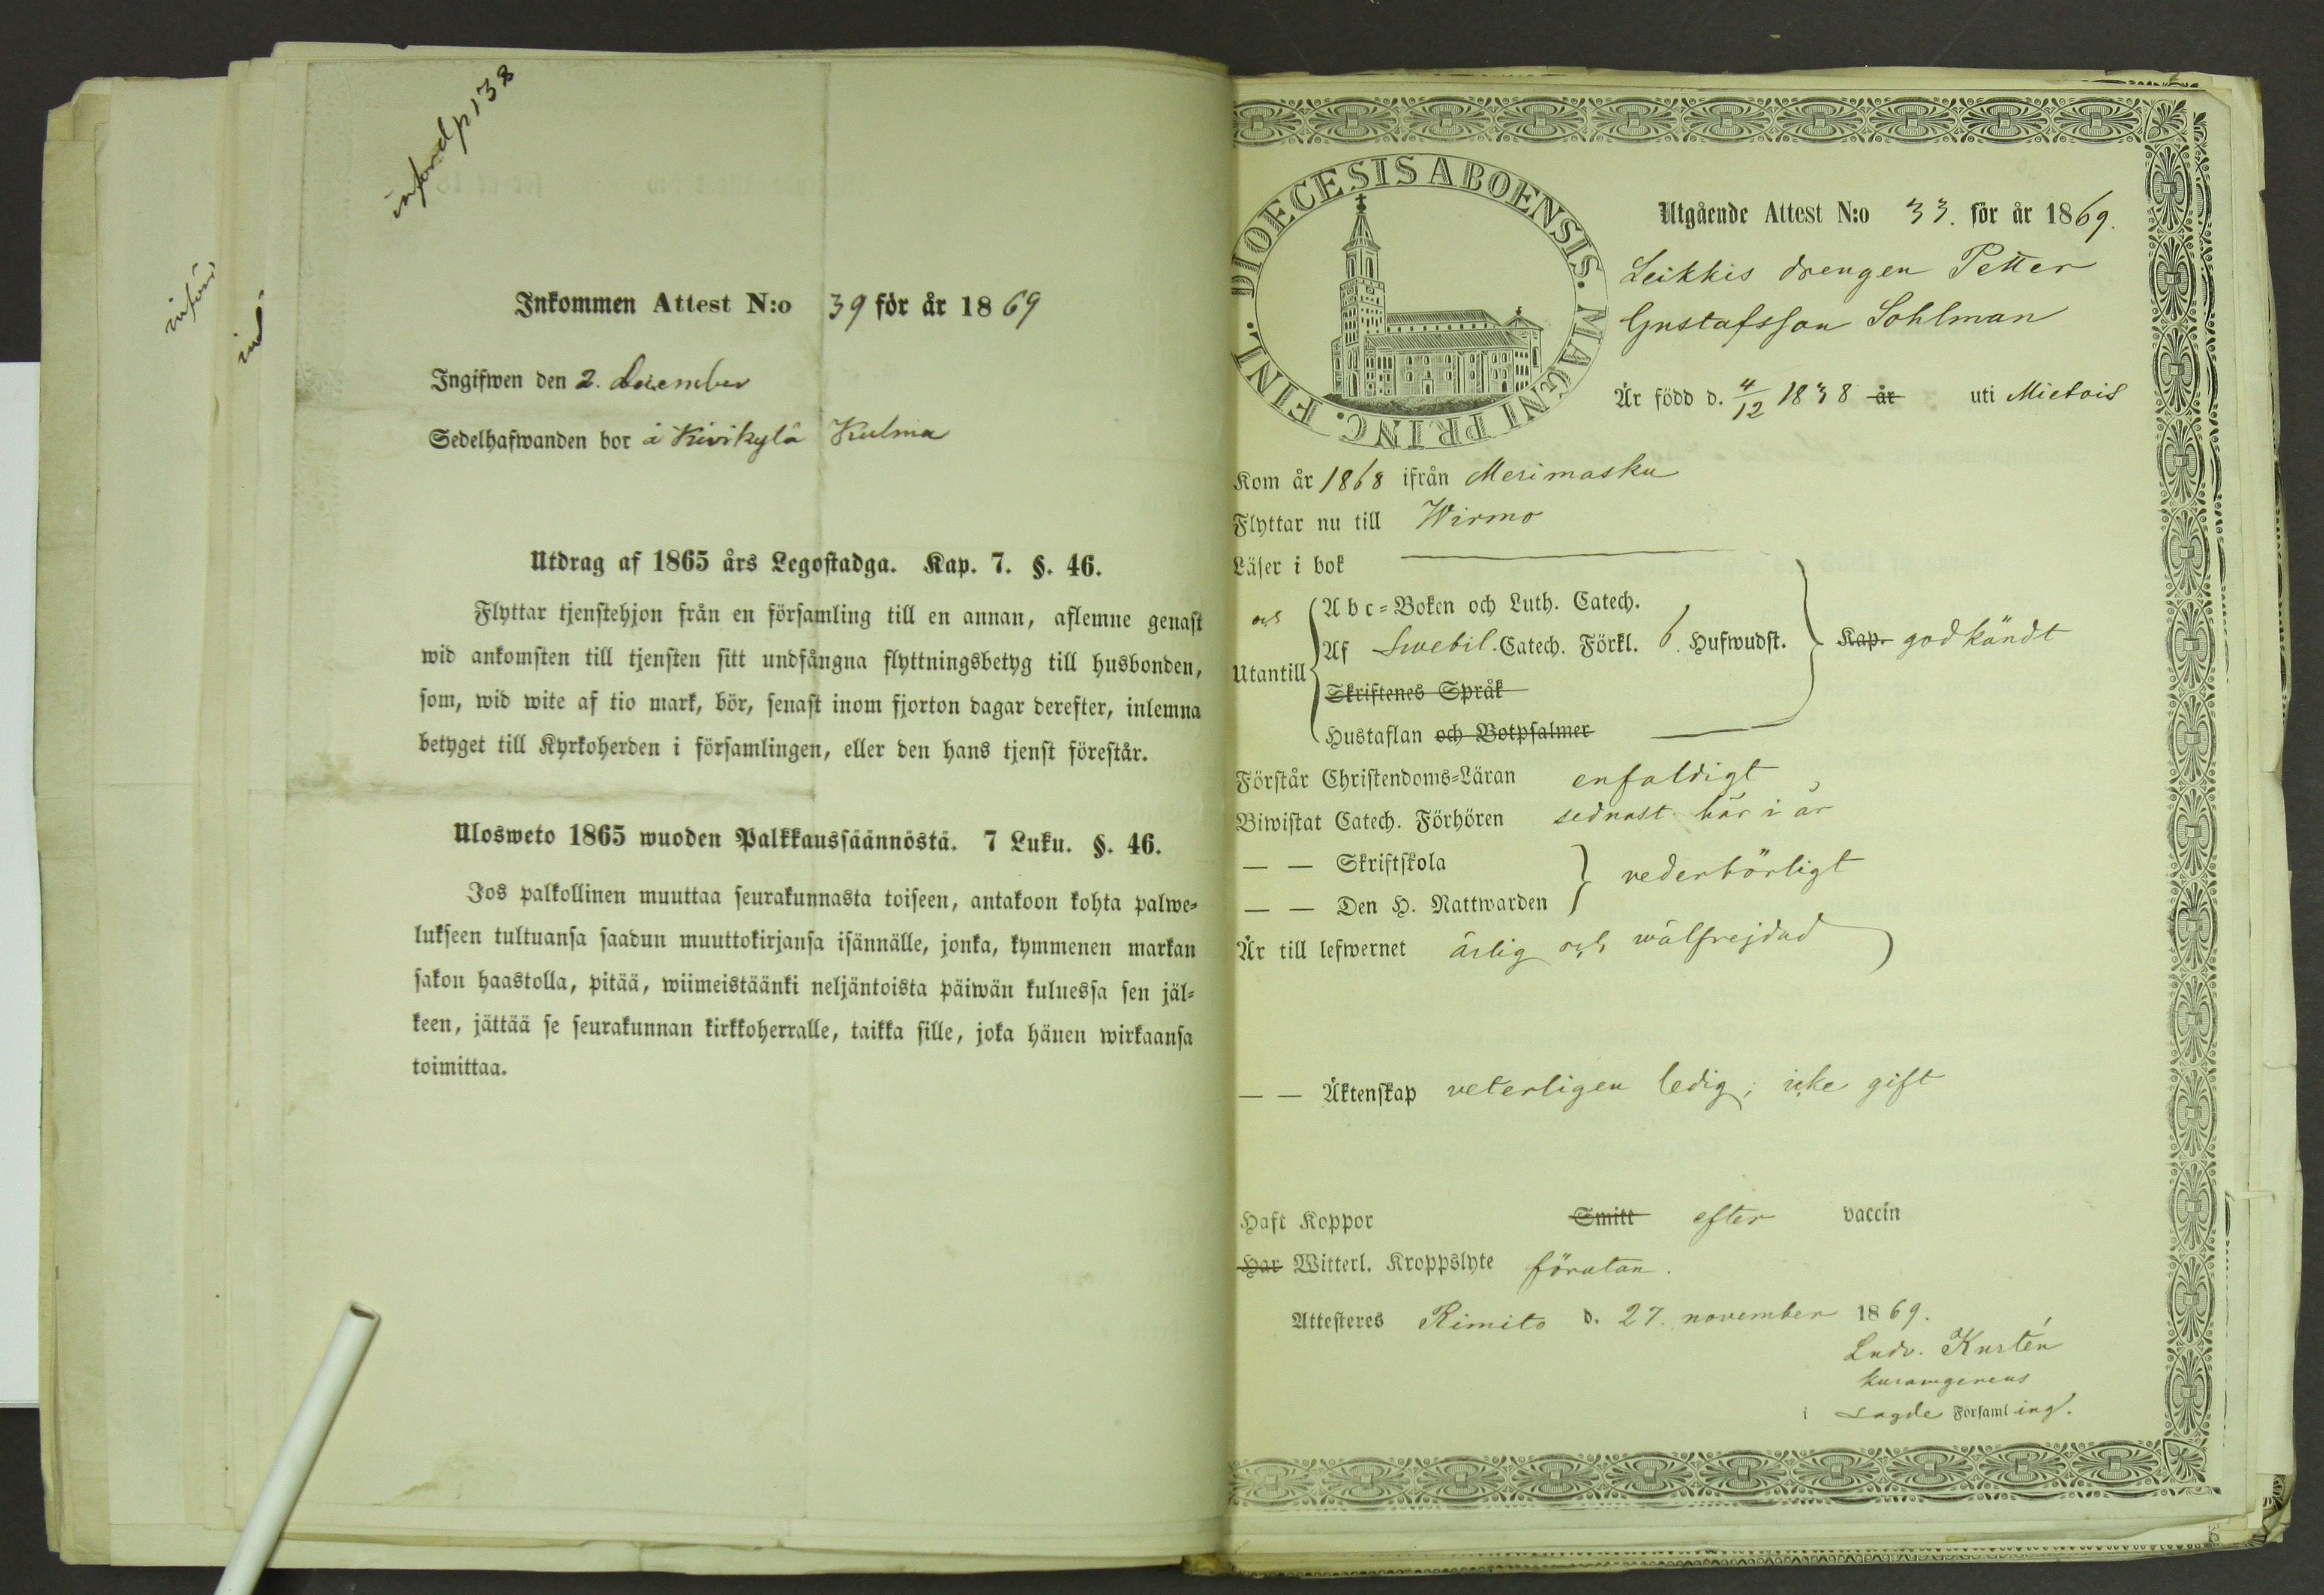 införd p 138
införd
Inkommen Attest N:o 39 för år 1869
Ingifwen den 2. december
Sedelhafwanden bor å Kivikylä Kulma
Utdrag af 1865 års Legostadga. Kap. 7. §. 46.
Flyttar tjenstehjon från en församling till en annan, aflemne genast
wid ankomsten till tjensten sitt undfångna flyttningsbetyg till husbonden,
som, wid wite af tio mark, bör, senast inom fjorton dagar derefter, inlemna
betyget till Kyrkoherden i församlingen, eller den hans tjenst förestår.
Ulosweto 1865 wuoden Palkkaussäännöstä. 7 Luku. §. 46.
Jos palkollinen muuttaa seurakunnasta toiseen, antakoon kohta palwe-
lukseen tultuansa saadun muuttokirjansa isännälle, jonka, kymmenen markan
sakon haastolla, pitää, wiimeistäänki neljäntoista päiwän kuluessa sen jäl-
keen, jättää se seurakunnan kirkkoherralle, taikka sille, joka hänen wirkaansa
toimittaa.
DIOECESIS ABOENSIS. MAGNI PRINC. FINL.
Utgående Attest N:o 33. för år 1869.
Leikkis drengen Petter
Gustafsson Sohlman
Är född d. 4/12 1838 år uti Mietois
Kom år 1868 ifrån Merimasku
Flyttar nu till Wirmo
Läser i bok
och
Abc-Boken och Luth. Catech.
Utantill
Af Swebil. Catech. Förkl. 6 Hufwudst. Kap. godkändt
Skriftenes Språk
Hustaflan och Botpsalmer
Förstår Christendoms-Läran enfaldigt
Biwistat Catech. Förhören sednast här i år
— — Skriftskola
vederbörligt
— — Den H. Nattwarden
Är till lefwernet ärlig och wälfrejdad
— — Äktenskap veterligen ledig; icke gift
Haft Koppor Smitt efter vaccin
Har Witterl. Kroppslyte förutan.
Attesteres Rimito d. 27. november 1869.
Ludv. Kustén
i sagde Församling.